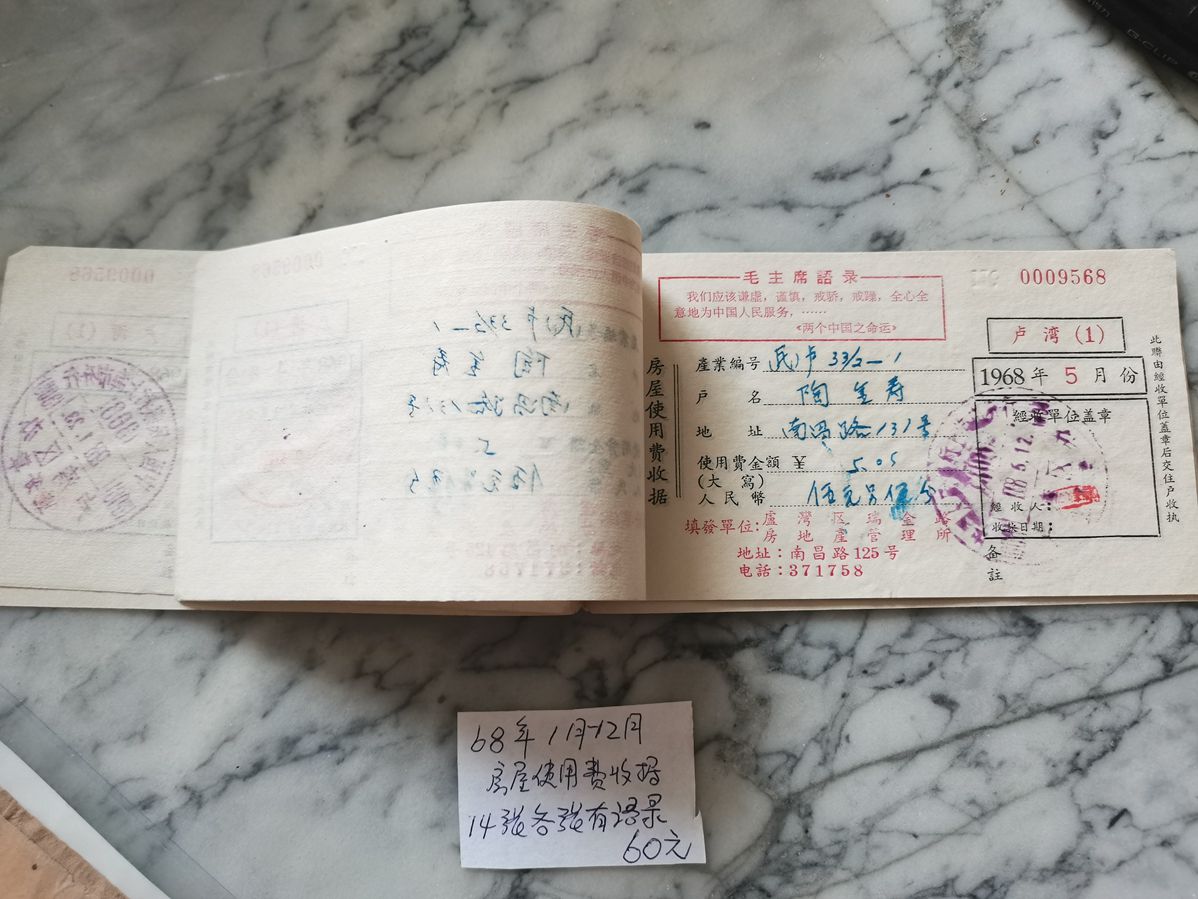 毛主席語录
我们应该谦虚,谨慎,戒骄,戒躁,全心全
意地为中国人民服务,……
《两个中国之命运》
0009568
卢湾(1)
1968年5月份
房屋使用费收据
産業編号 民卢33/2-1
户名 陶金寿
地址 南昌路131号
使用费金額 ¥ 5.05
(大寫)
人民幣 伍元另伍分
經收單位盖章
經收人:
收款日期:
备註
此聯由經收單位盖章后交住户收执
填發單位:盧灣区瑞金路
房地產管理所
地址:南昌路125号
电話:371758
68年1月-12月
房屋使用费收据
14张各张有语录
60元